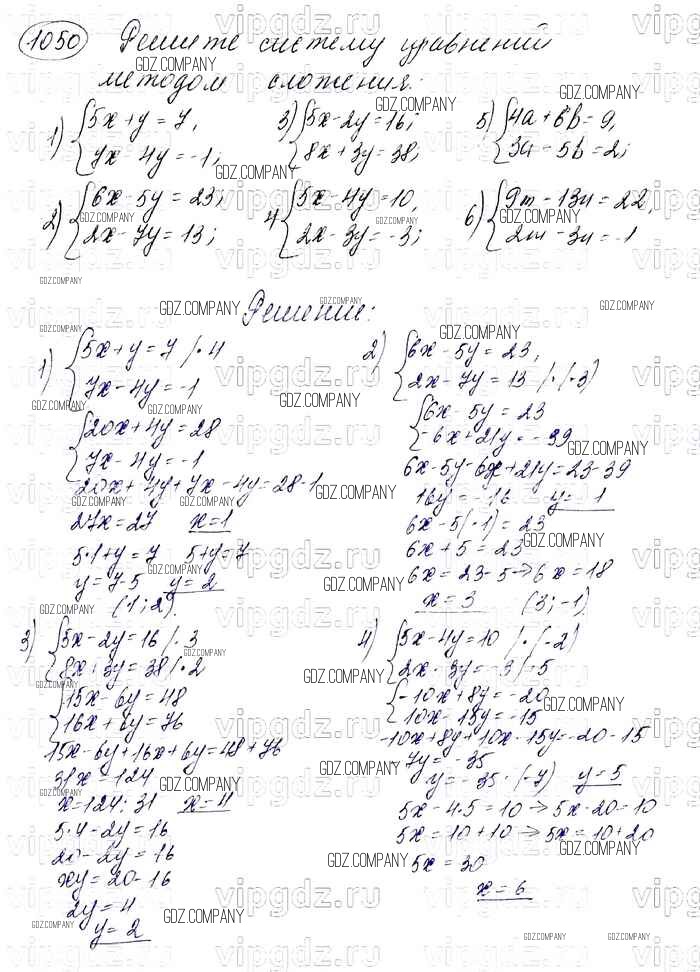 1050 Решите систему уравнений
методом сложения:
1) { 5x + y = 7,
7x - 4y = -1;
3) { 5x - 2y = 16;
8x + 3y = 38;
5) { 4a + 6b = 9,
3a - 5b = 2;
2) { 6x - 5y = 23;
2x - 7y = 13;
4 { 5x - 4y = 10,
2x - 3y = -3;
6) { 9m - 13n = 22,
2m - 3n = -1
Решение:
1) { 5x + y = 7 /·4
7x - 4y = -1
{ 20x + 4y = 28
7x - 4y = -1
20x + 4y + 7x - 4y = 28 - 1
27x = 27 x = 1
5·1 + y = 7 5 + y = 7
y = 7 - 5 y = 2
(1; 2)
2) { 6x - 5y = 23,
2x - 7y = 13 /·(·3)
{ 6x - 5y = 23
-6x + 21y = -39
6x - 5y - 6x + 21y = 23 - 39
16y = -16 y = -1
6x - 5(-1) = 23
6x + 5 = 23
6x = 23 - 5 → 6x = 18
x = 3 (3; -1)
3) { 5x - 2y = 16 /·3
8x + 3y = 38 /·2
{ 15x - 6y = 48
16x + 6y = 76
15x - 6y + 16x + 6y = 48 + 76
31x = 124
x = 124 : 31 x = 4
5·4 - 2y = 16
20 - 2y = 16
xy = 20 - 16
2y = 4
y = 2
4) { 5x - 4y = 10 /·(-2)
2x - 3y = -3 /·5
{ -10x + 8y = -20
10x - 15y = -15
-10x + 8y + 10x - 15y = -20 - 15
-7y = -35
y = -35 : (-7) y = 5
5x - 4·5 = 10 → 5x - 20 = 10
5x = 10 + 10 → 5x = 10 + 20
5x = 30
x = 6
vipgdz.ru
GDZ.COMPANY